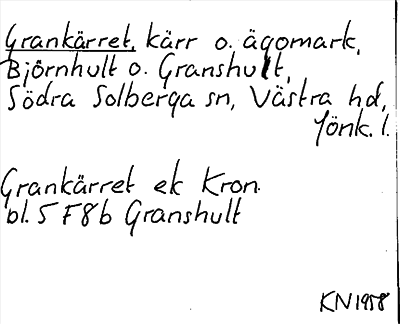 Grankärret, kärr o. ägomark,
Björnhult o. Granshult,
Södra Solberga sn, Västra hd,
Jönk. l.
Grankärret ek Kron.
bl. 5 F8b Granshult
KN1958